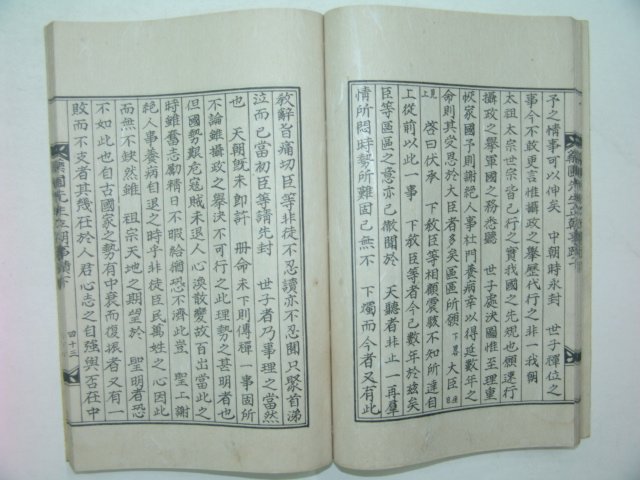 予之情事可以伸矣 中朝時永封 世子禪位之
事今不敢更言惟攝政之舉歷代行之非一我朝
太祖太宗世宗皆已行之實我國之先規也願速行
攝政之舉軍國之務悉聽 世子處決圖惟至理重
恢家國予則謝絶人事杜門養病幸以得延數年之
命則其受恩於大臣者多矣區區所願 大臣
啓曰伏承 下敎臣等相顧震駭不知所達自
上從前以此一事 下敎臣等者今已數年於玆矣
臣等區區之意亦已徹聞於 天聽者非止一再羣
情所悶時勢所難固已無不 下燭而今者又有此
敎辭旨痛切臣等非徒不忍讀亦不忍聞只聚首涕
泣而已當初臣等請先封 世子者乃事理之當然
也 天朝旣未卽許 冊命未下則傳禪一事固所
不論雖攝政之舉決不可行之此理勢之甚明者也
但國勢艱危寇賊未退人心渙散變故百出當此之
時雖奮志勵精日不暇給猶恐不濟此豈 聖上謝
絶人事養病自退之時乎非徒臣民萬姓之心因此
而無不缺然雖 祖宗天地之期望於 聖明者恐
不如此也自古國家之勢有中衰而復振者又有一
敗而不支者其幾在於人君心志之自強與否在中
藥圃先生立朝事蹟下 四十三